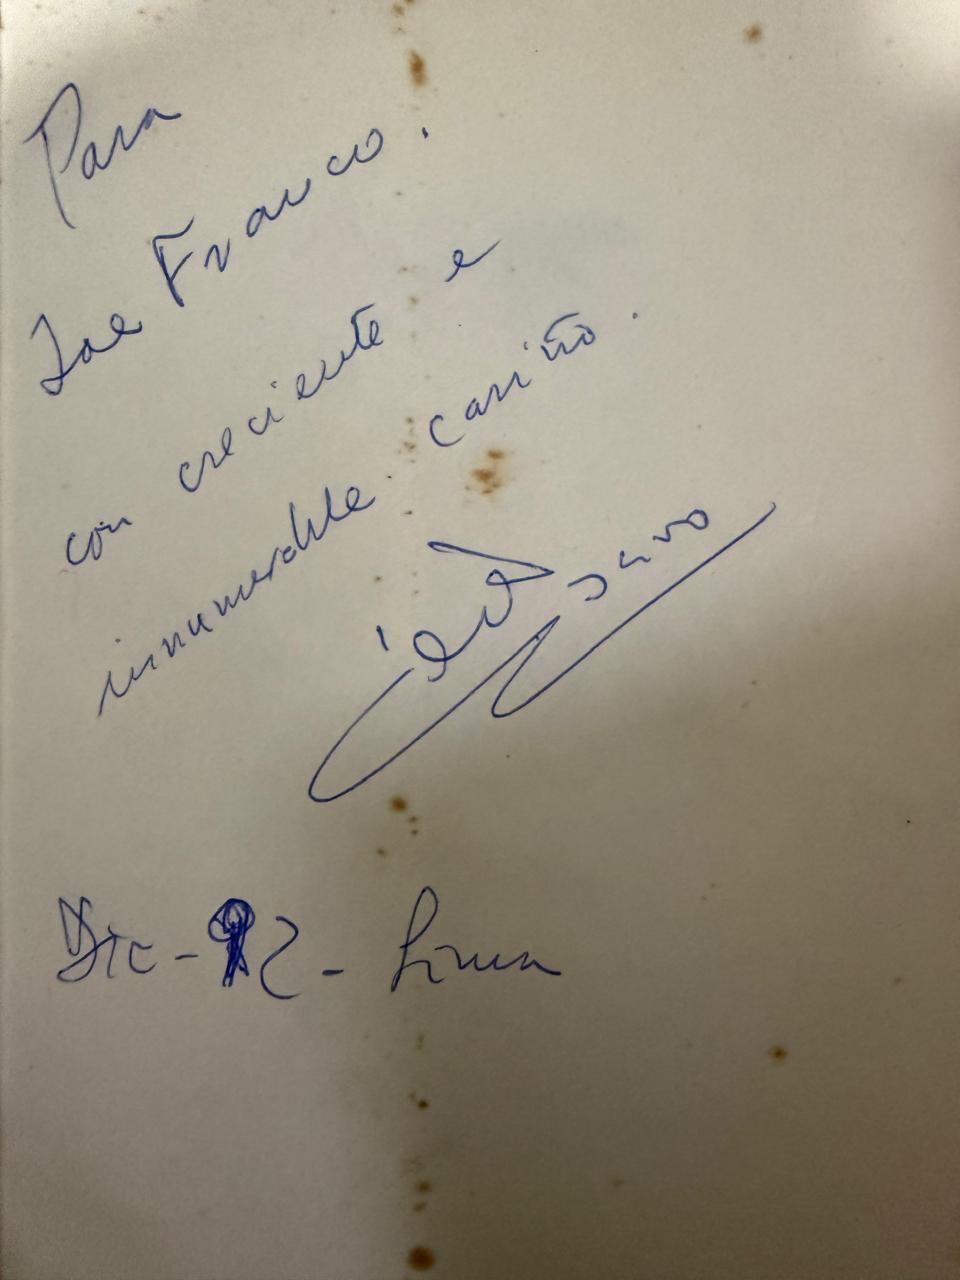 Para
Joe Franco.
con creciente e
innumerable cariño.
Dic - 92 - Lima